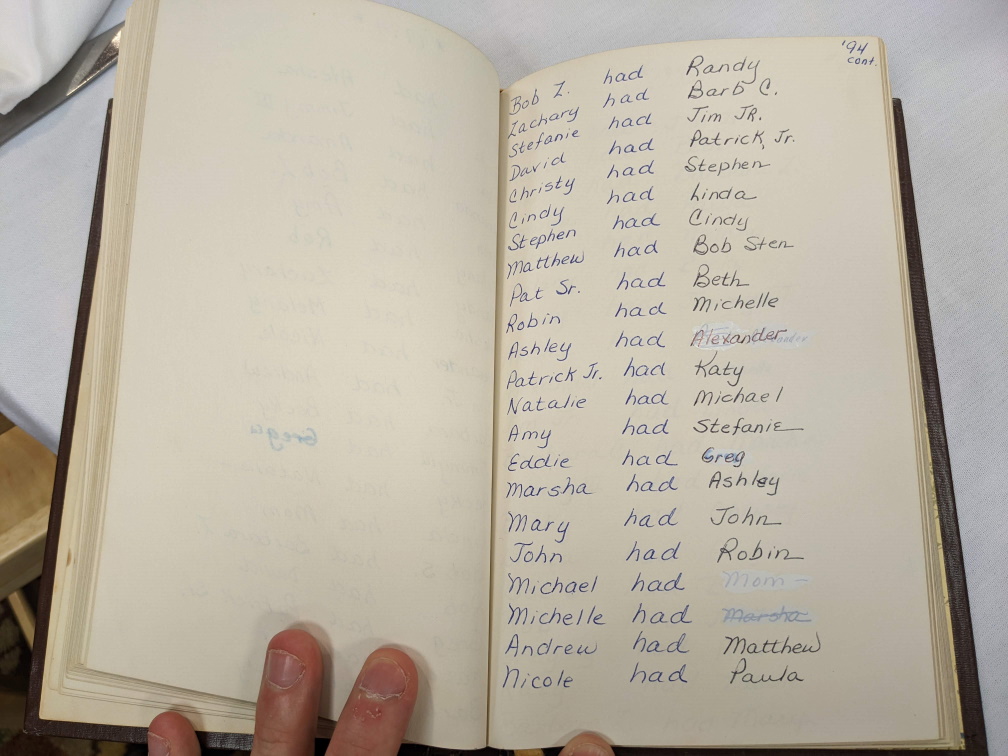 '94
cont.
Bob Z. had Randy
Zachary had Barb C.
Stefanie had Jim JR.
David had Patrick, Jr.
Christy had Stephen
Cindy had Linda
Stephen had Cindy
Matthew had Bob Sten
Pat Sr. had Beth
Robin had Michelle
Ashley had Alexander
Patrick Jr. had Katy
Natalie had Michael
Amy had Stefanie
Eddie had Greg
Marsha had Ashley
Mary had John
John had Robin
Michael had Mom
Michelle had Marsha
Andrew had Matthew
Nicole had Paula